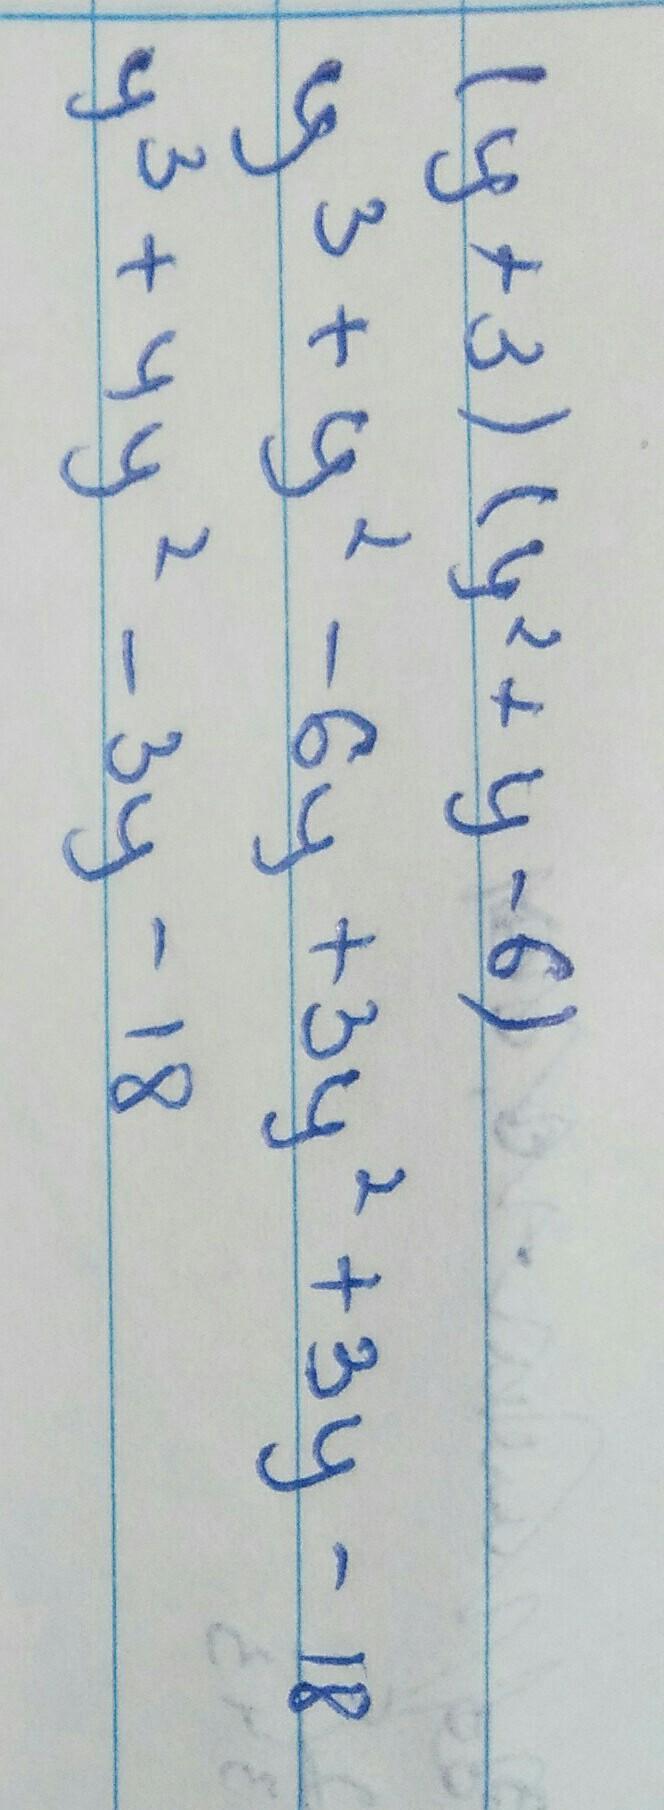 (y+3)(y²+y-6)
y³+y²-6y+3y²+3y-18
y³+4y²-3y-18